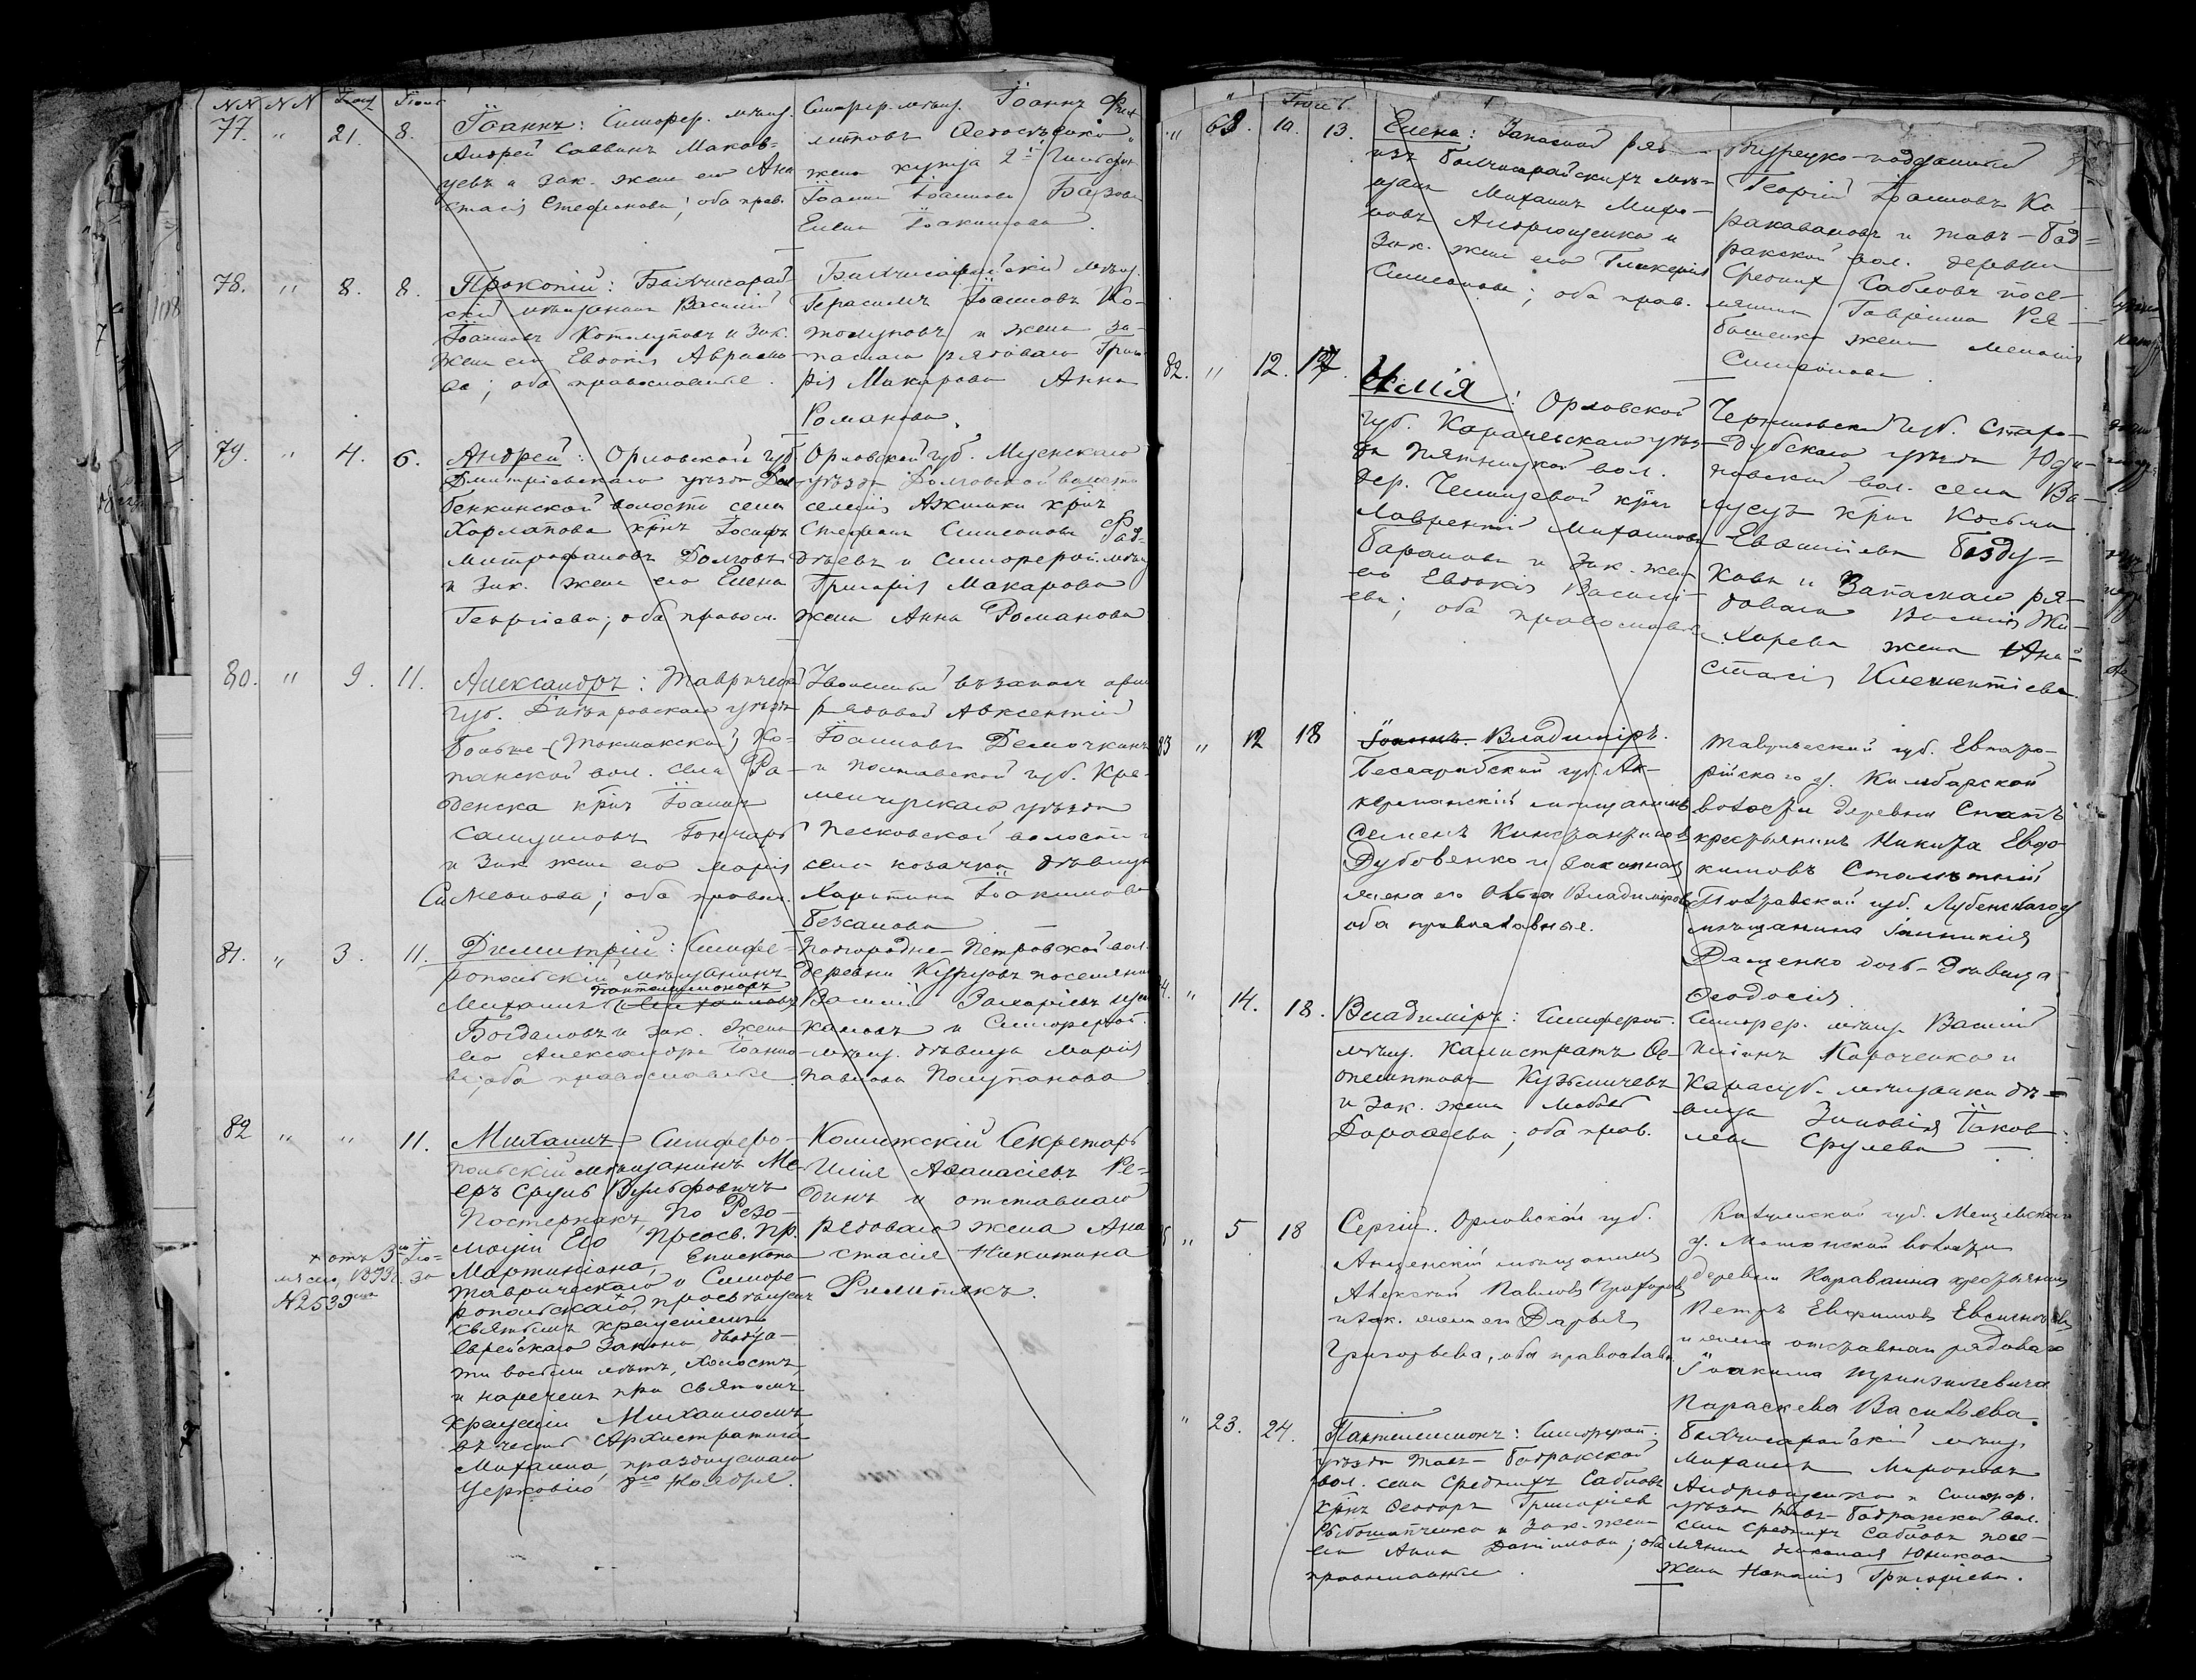 NN NN Іюль Іюль
77. " 21. 8.
Іоаннъ: Симфер. мѣщ.
Андрей Саввинъ Маков-
цевъ и зак. жена его Ана
стасія Стефанова; оба прав.
Симфер. мѣщ. Іоаннъ Фил
иповъ
жена купца 2й Гильдіи
Іоанна Іоаннова
Елена Іоакимова.
78. " 8. 8.
Прокопій: Бахчисарай
скій мѣщанинъ Василій
Іоанновъ Котолуповъ и Зак.
жена его Евдокія Авраамо
ва; оба православные.
Бахчисарайскій мѣщ.
Герасимъ Іоанновъ Ко-
толуповъ и жена за-
паснаго рядоваго Григо
рія Макарова Анна
Романова.
79. " 4. 6.
Андрей: Орловской губ
Дмитріевскаго уѣзда
волости села
Харланова крнъ Іосифъ
Митрофановъ Долговъ
и зак. жена его Елена
Георгіева; оба правосл.
Орловской губ. Мценскаго
уѣзда волости
крнъ
Стефанъ Симеоновъ Фад-
дѣевъ и Симферопол. мѣщ
Григорія Макарова
жена Анна Романова
80. " 9. 11.
Александръ: Таврической
губ. Днѣпровскаго уѣзда
Больше-(Токмакской) Ко-
панской вол. села Ра-
денска крнъ Іоаннъ
Самуиловъ Гончаръ
и Зак. жена его Марія
Симеонова; оба правосл.
Уволенный въ запасъ арм
рядовой Авксентій
Іоанновъ Демочкинъ
и Полтавской губ. Кре-
менчугскаго уѣзда
Песковской волости и
села козачка дѣвица
Харитина Іоакимова
Безсанова
81. " 3. 11.
Димитрій: Симфе-
ропольскій мѣщанинъ
Пантелеимоновъ
Михаилъ Михаиловъ
Богдановъ и зак. жена
его Александра Іоанно
ва; оба православные
Подгородне-Петровской вол.
деревни Курцовъ поселянинъ
Василій Захаріевъ
и Симферопол.
мѣщ. дѣвица Марія
Павлова Полупанова
82 " " 11.
Михаилъ Симферо-
польскій мѣщанинъ Ме
еръ Сруль Вульфовичъ
Постернакъ, по Резо-
люціи Его Преосв. Пр.
Мартиніана, Епископа
Таврическаго и Симфе-
ропольскаго, просвѣщенъ
святымъ крещеніемъ
еврейскаго закона двадца-
ти восьми лѣтъ, холостъ
и нареченъ при святомъ
крещеніи Михаиломъ
въ честь Архистратига
Михаила, празднуемаго
Церковію 8го Ноября.
+ отъ 3го Ію-
ля сего 1893г. за
№2539мъ
Коллежскій Секретарь
Илія Аѳанасіевъ Ре-
динъ и отставнаго
рядоваго жена Ана
стасія Никитина
Филипякъ.
Іюль
" 68. 10. 13.
Елена: Запасной ряд
изъ Бахчисарайскихъ мѣ-
щанъ Михаилъ Миро-
новъ Андрющенко и
Зак. жена его Гликерія
Симеонова; оба прав.
Турецко-подданный
Георгій Іоанновъ Ка-
ракавановъ и Тавъ-Бад-
ракской вол. деревни
Среднихъ Сабловъ посе-
лянина Гавріила Ря-
башенко жена Меланія
Симеонова.
82. " 12. 17.
Илія: Орловской
губ. Карачевскаго уѣз-
да Пятницкой вол.
дер. крнъ
Лаврентій Михаиловъ
Барановъ и Зак. жена
его Евдокія Василі-
ева; оба православные
Черниговской губ. Старо-
дубскаго уѣзда Юди-
новской вол. села Ва-
крнъ Косьма
Евѳиміевъ Базду-
ковъ и Запаснаго ря-
доваго Василія Жи-
харева жена Ана-
стасія Иннокентіева
83 " 12 18
Іоаннъ. Владиміръ.
Бессарабской губ. Ак-
керманскій мѣщанинъ
Семенъ Константиновъ
Дубовенко и законная
жена его Ольга Владимірова
оба православные.
Таврической губ. Евпато-
рійскаго у. Камбарской
волости деревни Спатъ
крестьянинъ Никита Евдо
кимовъ Стальтній
Полтавской губ. Лубенскаго у
мѣщанина Іоанникія
Даценко дочь-дѣвица
Ѳеодосія.
84. " 14. 18.
Владиміръ: Симферопол.
мѣщ. Калистратъ Ѳе-
опемптовъ Кузьмичевъ
и Зак. жена Любовь
Дороѳеева; оба прав.
Симфер. мѣщ. Василій
Короченко и
Карасуб. мѣщанка дѣ-
вица Зиновія Іаков-
лева Срулева
" 5 18
Сергій. Орловской губ.
мѣщанинъ
Алексѣй Павловъ
и зак. жена его Дарья
Григорьева, оба православн.
Калужской губ. Мещевскаго
у. волости
деревни Караваина крестьянинъ
Петръ Евфимовъ Евсигнѣевъ
и жена отставнаго рядоваго
Іоакима
Параскева Васильева.
" 23. 24.
Пантелеимонъ: Симферопол.
уѣзда Тавъ-Бадракской
вол. села Среднихъ Сабловъ
крнъ Ѳеодоръ Григоріевъ
и Зак. жена
его Анна Даніилова; оба
православные.
Бахчисарайскій мѣщ.
Михаилъ Мироновъ
Андрющенко и Симфер.
уѣзда Тавъ-Бадракской вол.
села Среднихъ Сабловъ посе-
лянина Николая
жена Наталія Григоріева.